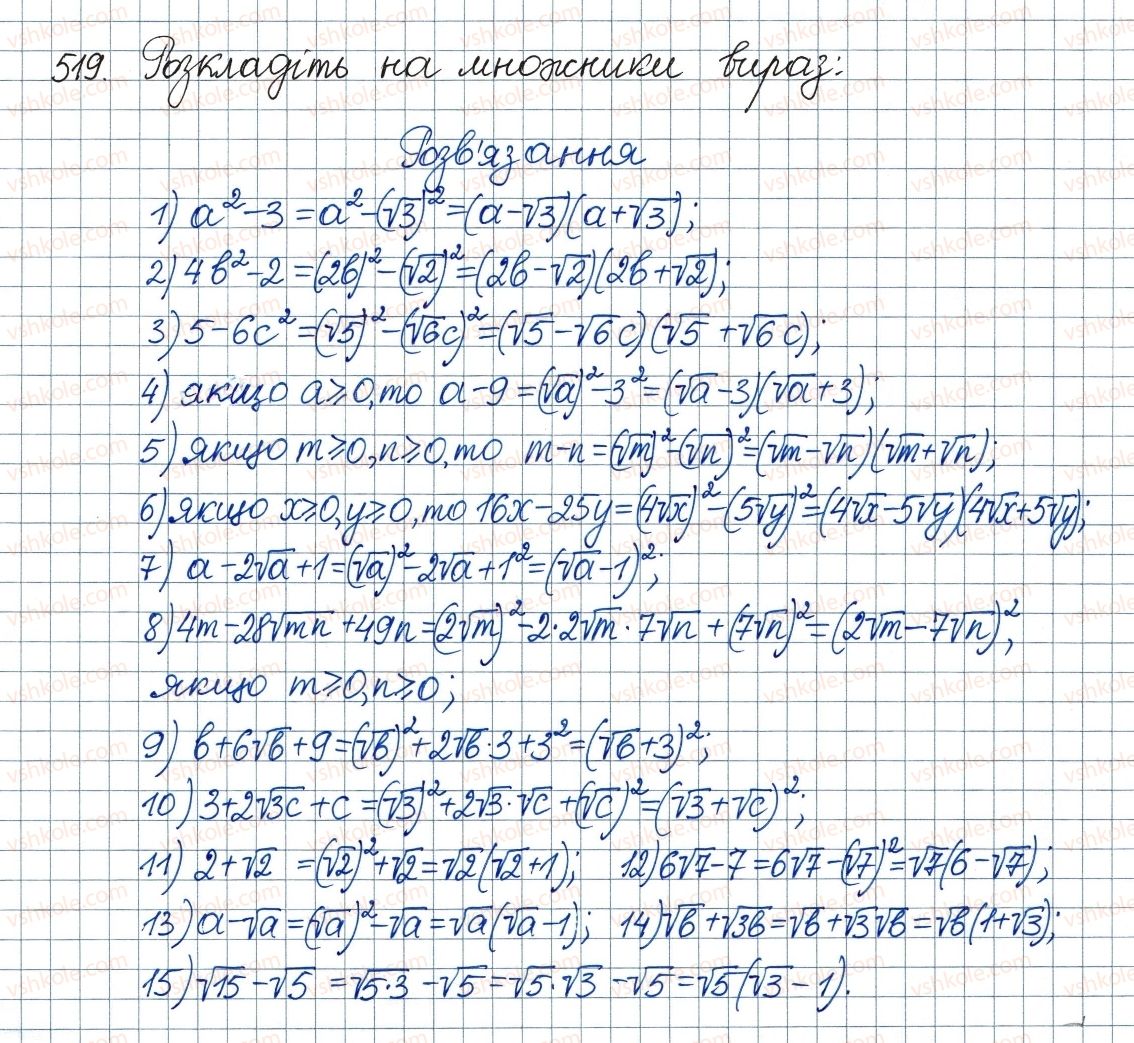 519. Розкладіть на множники вираз:
Розв'язання
1) a² - 3 = a² - (√3)² = (a - √3)(a + √3);
2) 4b² - 2 = (2b)² - (√2)² = (2b - √2)(2b + √2);
3) 5 - 6c² = (√5)² - (√6c)² = (√5 - √6c)(√5 + √6c);
4) якщо a ≥ 0, то a - 9 = (√a)² - 3² = (√a - 3)(√a + 3);
5) якщо m ≥ 0, n ≥ 0, то m - n = (√m)² - (√n)² = (√m - √n)(√m + √n);
6) якщо x ≥ 0, y ≥ 0, то 16x - 25y = (4√x)² - (5√y)² = (4√x - 5√y)(4√x + 5√y);
7) a - 2√a + 1 = (√a)² - 2√a + 1² = (√a - 1)²;
8) 4m - 28√mn + 49n = (2√m)² - 2·2√m·7√n + (7√n)² = (2√m - 7√n)²,
якщо m ≥ 0, n ≥ 0;
9) b + 6√b + 9 = (√b)² + 2√b·3 + 3² = (√b + 3)²;
10) 3 + 2√3c + c = (√3)² + 2√3·√c + (√c)² = (√3 + √c)²;
11) 2 + √2 = (√2)² + √2 = √2(√2 + 1); 12) 6√7 - 7 = 6√7 - (√7)² = √7(6 - √7);
13) a - √a = (√a)² - √a = √a(√a - 1); 14) √b + √3b = √b + √3√b = √b(1 + √3);
15) √15 - √5 = √5·3 - √5 = √5·√3 - √5 = √5(√3 - 1).